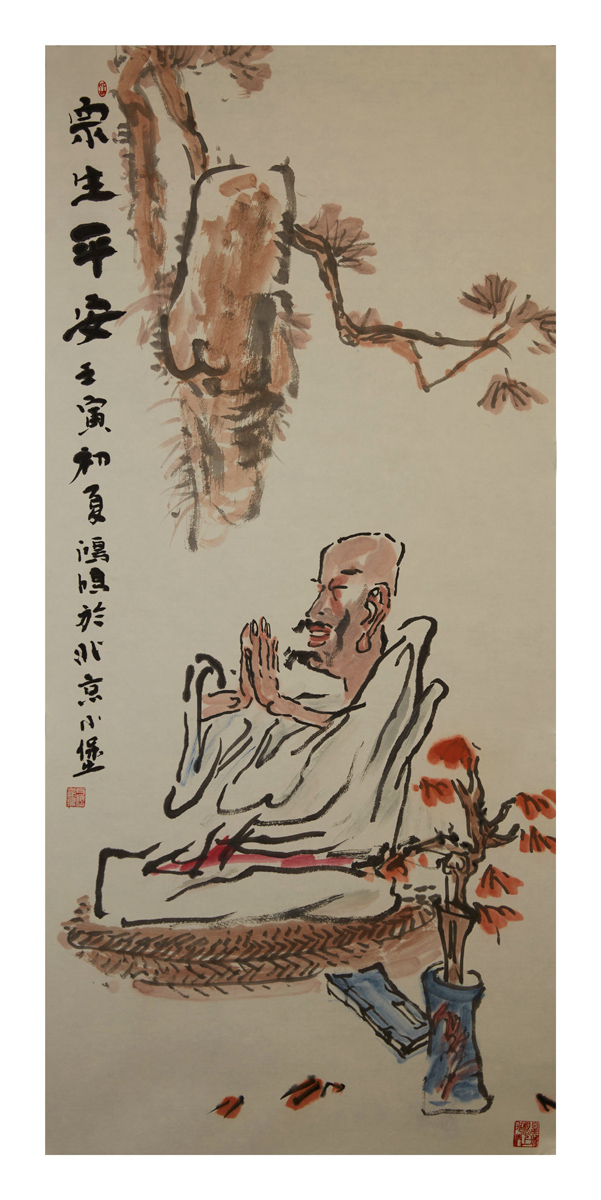 眾生平安壬寅初夏鴻鳴於北京小堡